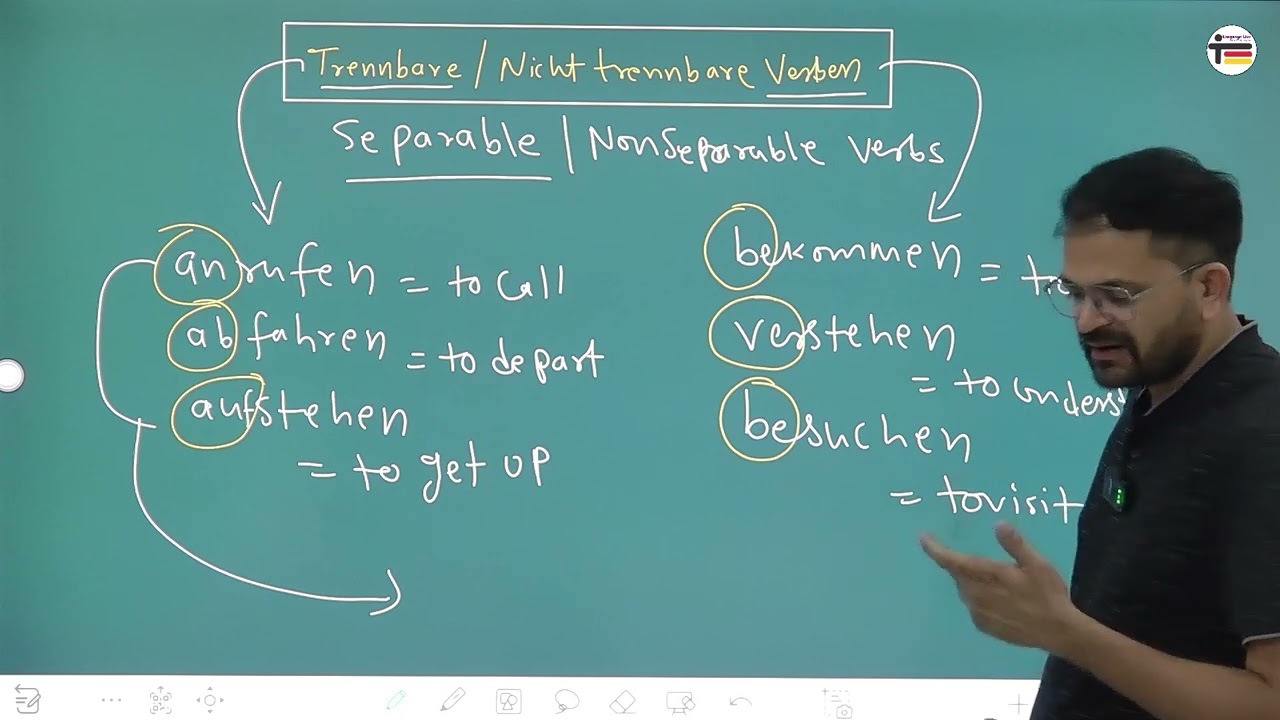 Trennbare / Nicht trennbare Verben
Separable / NonSeparable verbs
anrufen = to call
abfahren = to depart
aufstehen
= to get up
bekommen =
verstehen
= to
besuchen
= to visit